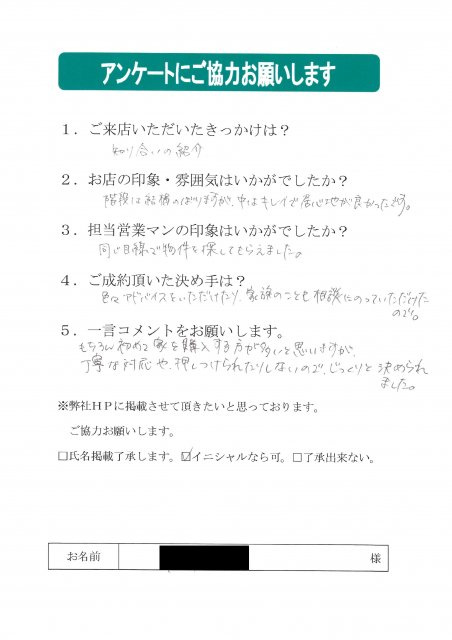 アンケートにご協力お願いします
1．ご来店いただいたきっかけは？
知り合いの紹介
2．お店の印象・雰囲気はいかがでしたか？
階段は結構のぼりますが、中はキレイで居心地が良かったです。
3．担当営業マンの印象はいかがでしたか？
同じ目線で物件を探してもらえました。
4．ご成約頂いた決め手は？
色々アドバイスをいただけたり、家族のことも相談にのっていただけた
ので。
5．一言コメントをお願いします。
もちろん初めて家を購入する方が多いと思いますが、
丁寧な対応や、押しつけられたりしないので、じっくりと決められ
ました。
※弊社HPに掲載させて頂きたいと思っております。
ご協力お願いします。
□氏名掲載了承します。☑イニシャルなら可。□了承出来ない。
お名前 様